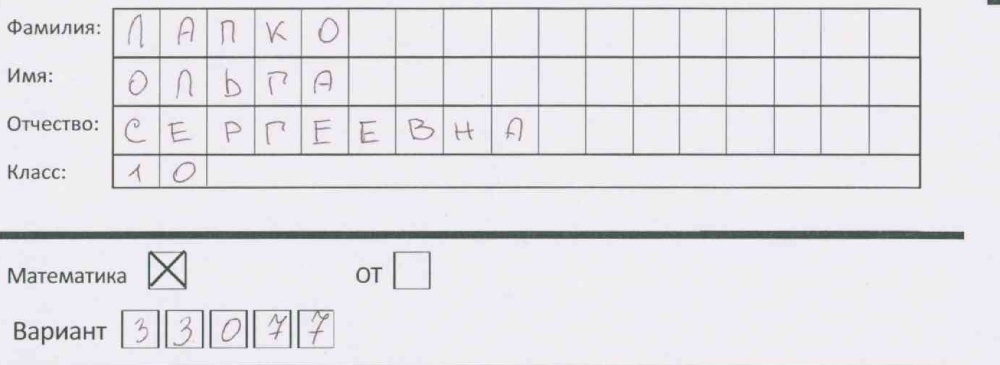 Фамилия: ЛАПКО
Имя: ОЛЬГА
Отчество: СЕРГЕЕВНА
Класс: 10
Математика ☒ ОТ ☐
Вариант 33077